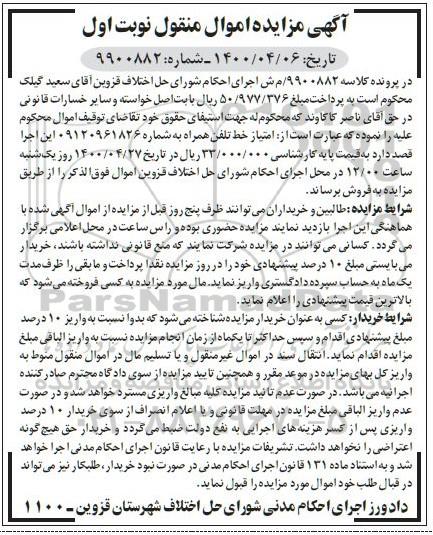 آگهی مزایده اموال منقول نوبت اول
تاریخ: ۱۴۰۰/۰۴/۰۶ ـ شماره: ۹۹۰۰۸۸۲
در پرونده کلاسه ۹۹۰۰۸۸۲/م ش اجرای احکام شورای حل اختلاف قزوین آقای سعید گیلک
محکوم است به پرداخت مبلغ ۵۰/۹۷۷/۳۷۶ ریال بابت اصل خواسته و سایر خسارات قانونی
در حق آقای ناصر کاکاوند که محکوم له جهت استیفای حقوق خود تقاضای توقیف اموال محکوم
علیه را نموده که عبارت است از: امتیاز خط تلفن همراه به شماره ۰۹۱۲۰۹۶۱۸۲۶ این اجرا
قصد دارد به قیمت پایه کارشناسی ۳۳/۰۰۰/۰۰۰ ریال در تاریخ ۱۴۰۰/۰۴/۲۷ روز یک‌شنبه
ساعت ۱۲/۰۰ در محل اجرای احکام شورای حل اختلاف قزوین اموال فوق الذکر را از طریق
مزایده به فروش برساند.
شرایط مزایده: طالبین و خریداران می‌توانند ظرف پنج روز قبل از مزایده از اموال آگهی شده با
هماهنگی این اجرا بازدید نمایند مزایده حضوری بوده و راس ساعت در محل اعلامی برگزار
می‌گردد. کسانی می‌توانند در مزایده شرکت نمایند که منع قانونی نداشته باشند، خریدار
می‌بایستی مبلغ ۱۰ درصد پیشنهادی خود را در روز مزایده نقدا پرداخت و مابقی را ظرف مدت
یک ماه به حساب سپرده دادگستری واریز نماید. مال مورد مزایده به کسی فروخته می‌شود که
بالاترین قیمت پیشنهادی را اعلام نماید.
شرایط خریدار: کسی به عنوان خریدار مزایده شناخته می‌شود که بدوا نسبت به واریز ۱۰ درصد
مبلغ پیشنهادی اقدام و سپس حداکثر تا یکماه از زمان انجام مزایده نسبت به واریز الباقی مبلغ
مزایده اقدام نماید. انتقال سند در اموال غیرمنقول و یا تسلیم مال در اموال منقول منوط به
واریز کل بهای مزایده در موعد مقرر و همچنین تایید مزایده از سوی دادگاه محترم صادرکننده
اجرائیه می‌باشد. در صورت عدم تائید مزایده کلیه مبالغ واریزی مسترد خواهد شد و در صورت
عدم واریز الباقی مبلغ مزایده در مهلت قانونی و یا اعلام انصراف از سوی خریدار ۱۰ درصد
واریزی پس از کسر هزینه‌های اجرایی به نفع دولت ضبط می‌گردد و خریدار حق هیچ‌گونه
اعتراضی را نخواهد داشت. تشریفات مزایده با رعایت قانون اجرای احکام مدنی اجرا خواهد
شد و به استناد ماده ۱۳۱ قانون اجرای احکام مدنی در صورت نبود خریدار، طلبکار نیز می‌تواند
در قبال طلب خود اموال مورد مزایده را قبول نماید.
دادورز اجرای احکام مدنی شورای حل اختلاف شهرستان قزوین ـ ۱۱۰۰